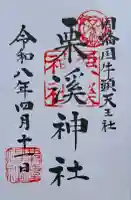 因幡国牛頭天王社
栗溪神社
令和八年四月十一日